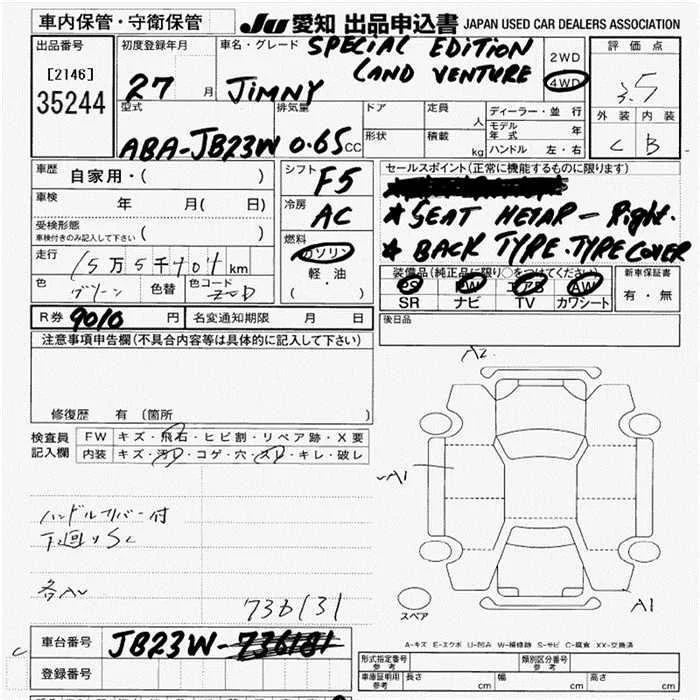 車内保管・守衛保管
JU 愛知 出品申込書 JAPAN USED CAR DEALERS ASSOCIATION
出品番号
[2146]
35244
初度登録年月
27 月
車名・グレード SPECIAL EDITION
LAND VENTURE
JIMNY
2WD
4WD
評価点
3.5
外装 内装
C B
型式
ABA-JB23W
排気量
0.65CC
ドア
形状
定員 人
積載 kg
ディーラー・並行
モデル年式 年
ハンドル 左・右
車歴 自家用・( )
車検 年 月( 日)
受検形態
車検付きのみ記入して下さい ( )
走行 15万5千404km
色 グリーン 色替 色コード ZCD
シフト F5
冷房 AC
燃料
ガソリン
軽・油
( ・ )
セールスポイント(正常に機能するものに限ります)
★ SEAT HETAR - Right.
★ BACK TYPE.TYPE COVER
装備品(純正品に限り○をつけてください)
PS PW エアB AW
SR ナビ TV カワシート
新車保証書
有・無
R券 9010 円 名変通知期限 月 日
後日品
注意事項申告欄(不具合内容等は具体的に記入して下さい)
修復歴 有 (箇所 )
検査員記入欄
FW キズ・飛石・ヒビ割・リペア跡・X要
内装 キズ・汚レ・コゲ・穴・スレ・キレ・破レ
A2
A1
A1
スペア
ハンドルカバー付
下回りSC
各AU
736131
車台番号 JB23W-
登録番号
A-キズ E-エクボ U-凹み W-補修跡 S-サビ C-腐食 XX-交換済
形式指定番号 参考
類別区分番号 参考
車庫証明用 参考 長さ cm 幅 cm 高さ cm